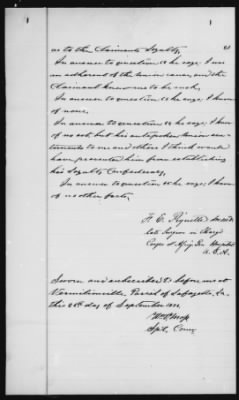 1
1
as to the Claimants Loyalty.
In answer to question he says; I was
an adherent of the Union cause, and the
Claimant knew me to be such.
In answer to question he says; I know
of none.
In answer to question he says; I know
of no act, but his outspoken Union sen-
timents to me and others I think would
have prevented him from establishing
his Loyalty Confederacy.
In answer to question he says; I know
of no other facts.
late Surgeon in Charge
Corps d'Afrique Hospital
U.S.A.
Sworn and subscribed to before me at
Vermilionville, Parish of Lafayette, La
this 25th day of September 1872.
Spl. Comr